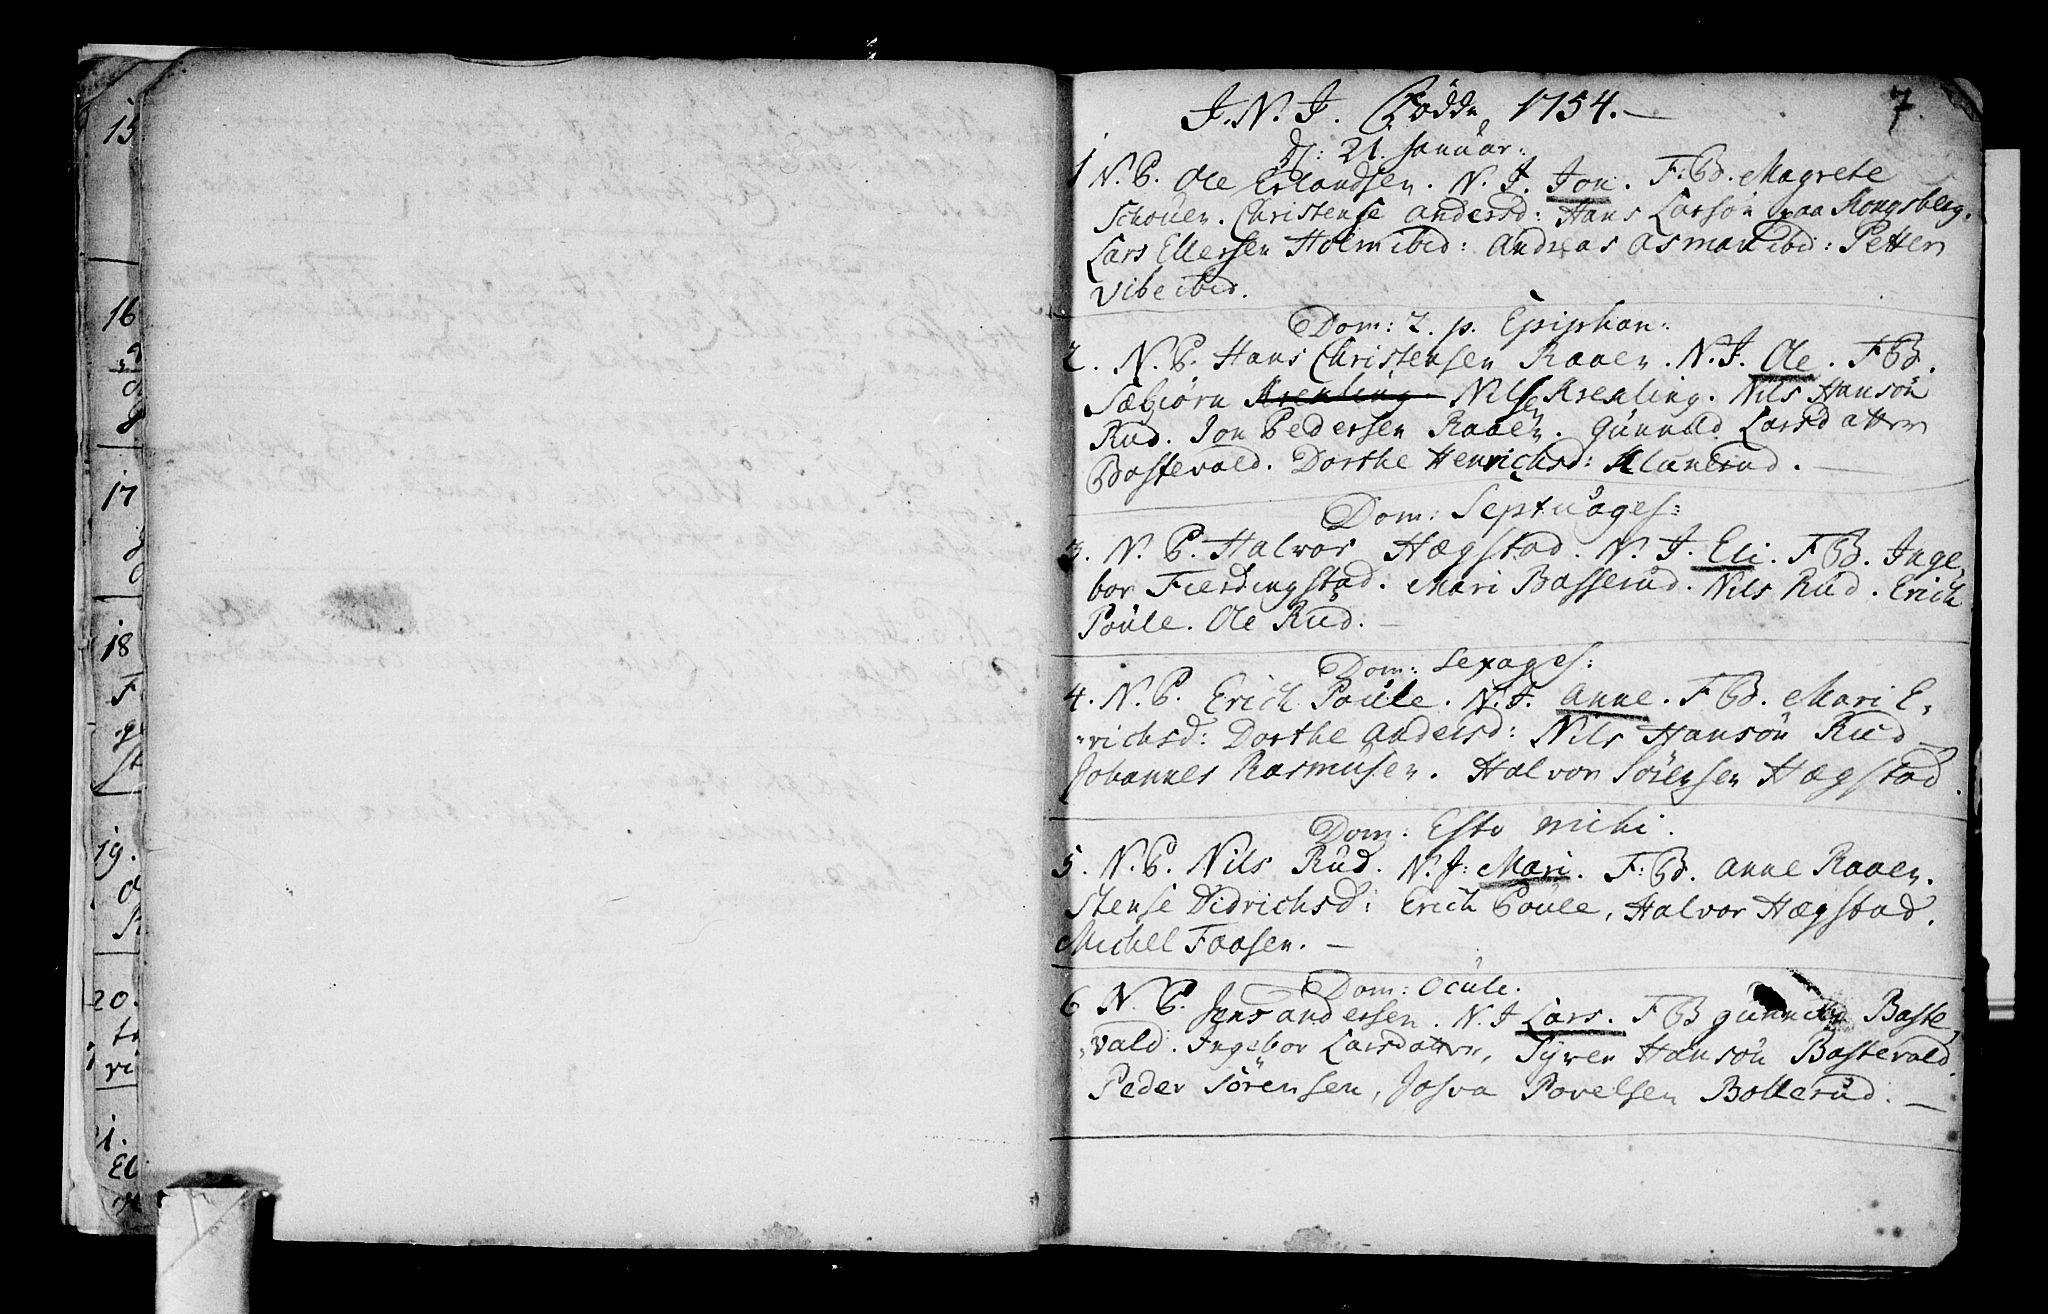 15
16
17
18
19.
20.
J. N. J. Födde 1754.
7.
d: 21. Januar:
1 N. B. Ole Erlandsen. N. J. Jon. F: B. Magrete
Schouen. Christense Andersd: Hans Larsön paa Kongsberg.
Lars Ellersen Holm ibid: Andreas Asman ibid: Petter
Vibe ibid.
Dom: 2. p. Epiphan:
2. N. B. Hans Christensen Raaen. N. J. Ole. F B.
Sæbjörn Krekling Nilsen Krekling. Nils Hansön
Rud. Jon Pedersen Raaen. Gunnild Larsdatter
Bastevald. Dorthe Henrichsd:
Dom: Septuages:
3. N. B. Halvor Hægstad. N. J. Eli. F B. Inge,
bor Fierdingstad. Mari Basserud. Nils Rud. Erich
Poule. Ole Rud.
Dom: Sexages:
4. N. B. Erich Poule. N. J. Anne. F B. Mari E,
,richsd: Dorthe Andersd: Nils Hansön Rud
Johannes Rasmusen. Halvor Sörensen Hægstad.
Dom: Esto mihi.
5. N. B. Nils Rud. N. J: Mari. F: B. Anne Raaen.
Stense Didrichsd: Erich Poule, Halvor Hægstad.
Michel Faasen.
Dom: Oculi.
6 N. B. Jens Andersen. N. J Lars. F B Baste,
,vald. Ingebor Larsdatter, Syver Hansön Bastevald.
Peder Sörensen, Josva Povelsen Bollerud.